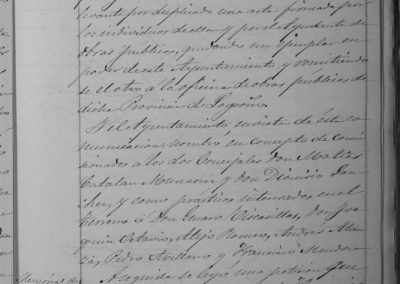 levante por duplicado una acta firmada por
los individuos de ella y por el Ayudante de
obras publicas, quedando un ejemplar en
poder de este Ayuntamiento y remitiendo
se el otro á la oficina de obras publicas de
dicha Provincia de Logroño.
Y el Ayuntamiento en vista de esta co
municacion, nombró en concepto de comi
sionados a los dos Concejales Don Matias
Catalan y Don Dionisio San
chez, y como practicos interesados en el
terreno á Don Genaro Don Joa
quin Octavio, Alejo Ramos, Andres
Pedro Arellano y Francisco Mendoza
A seguida se leyo una peticion que